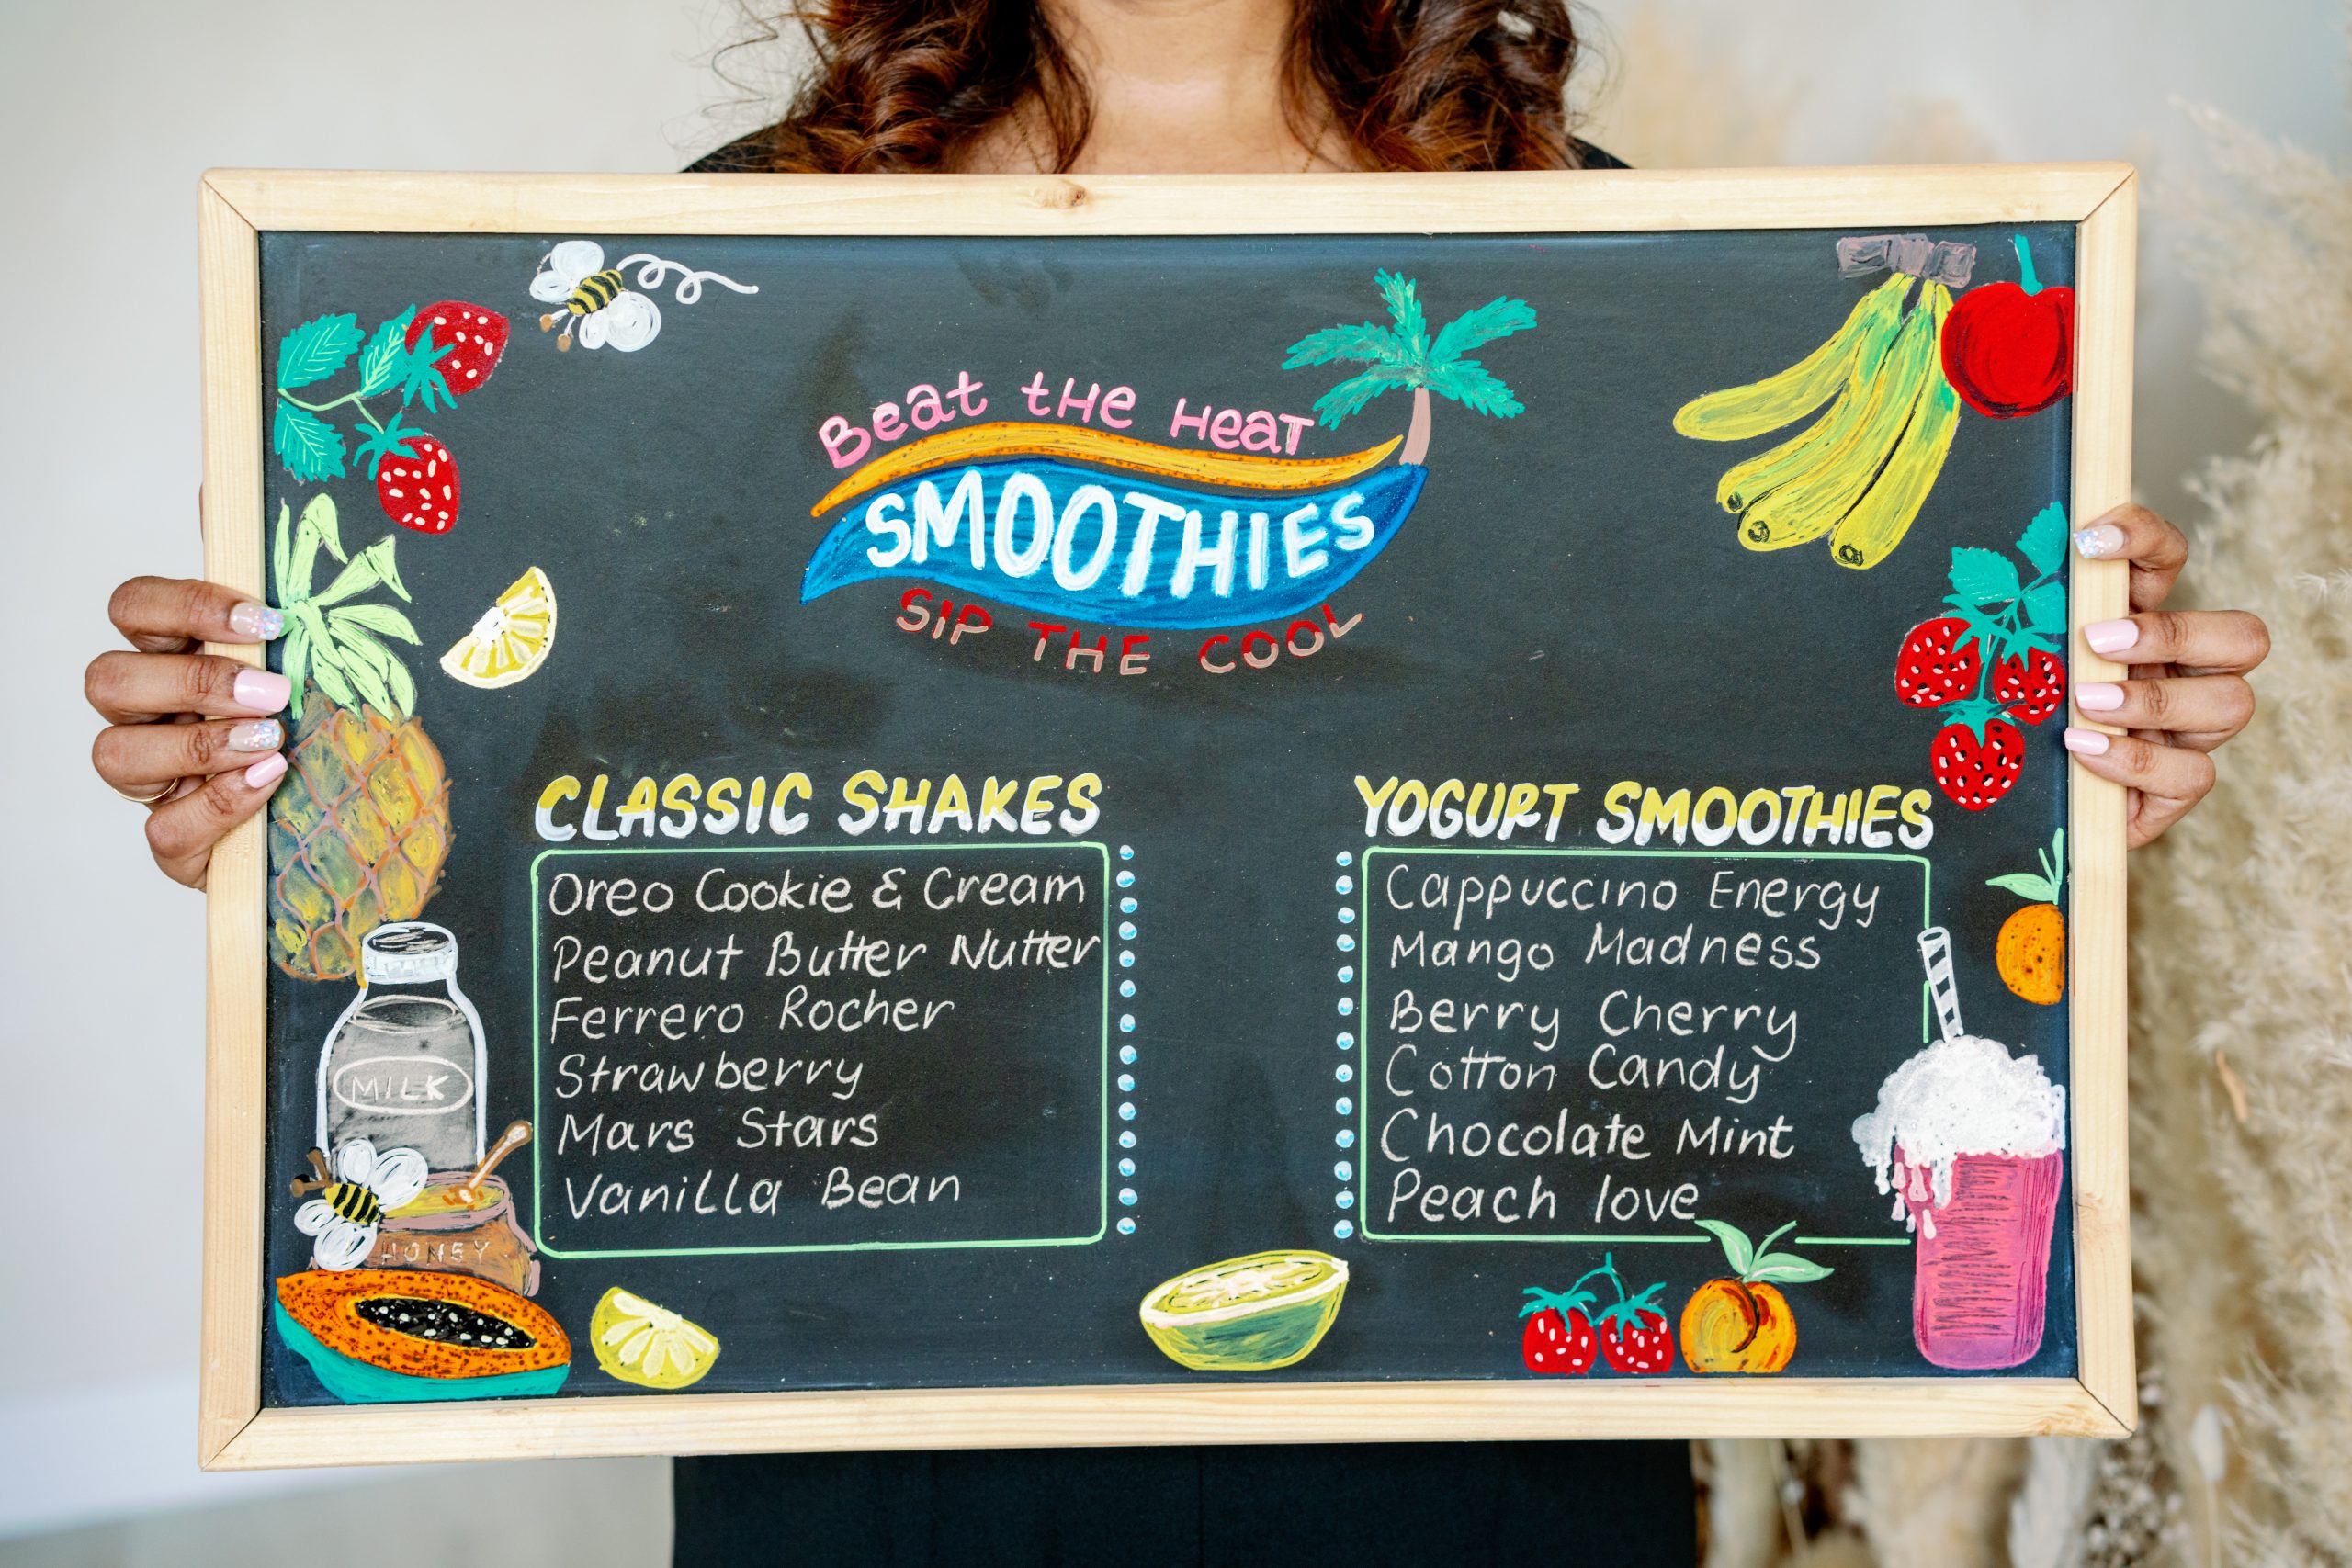 Beat the Heat
SMOOTHIES
SIP THE COOL
CLASSIC SHAKES
Oreo Cookie & Cream
Peanut Butter Nutter
Ferrero Rocher
Strawberry
Mars Stars
Vanilla Bean
YOGURT SMOOTHIES
Cappuccino Energy
Mango Madness
Berry Cherry
Cotton Candy
Chocolate Mint
Peach love
MILK
HONEY